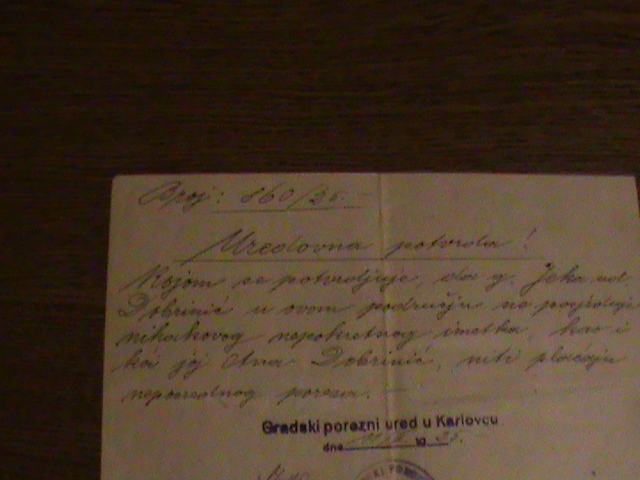 Broj: 860/35.
Uredovna potvrda!
Kojom se potvrdjuje, da g. Jeka ud.
Dobrinić u ovom području ne posjeduje
nikakovog nepokretnog imetka, kao i
kći joj Ana Dobrinić, niti plaćaju
neposrednog poreza.
Gradski porezni ured u Karlovcu
dne 19 35.